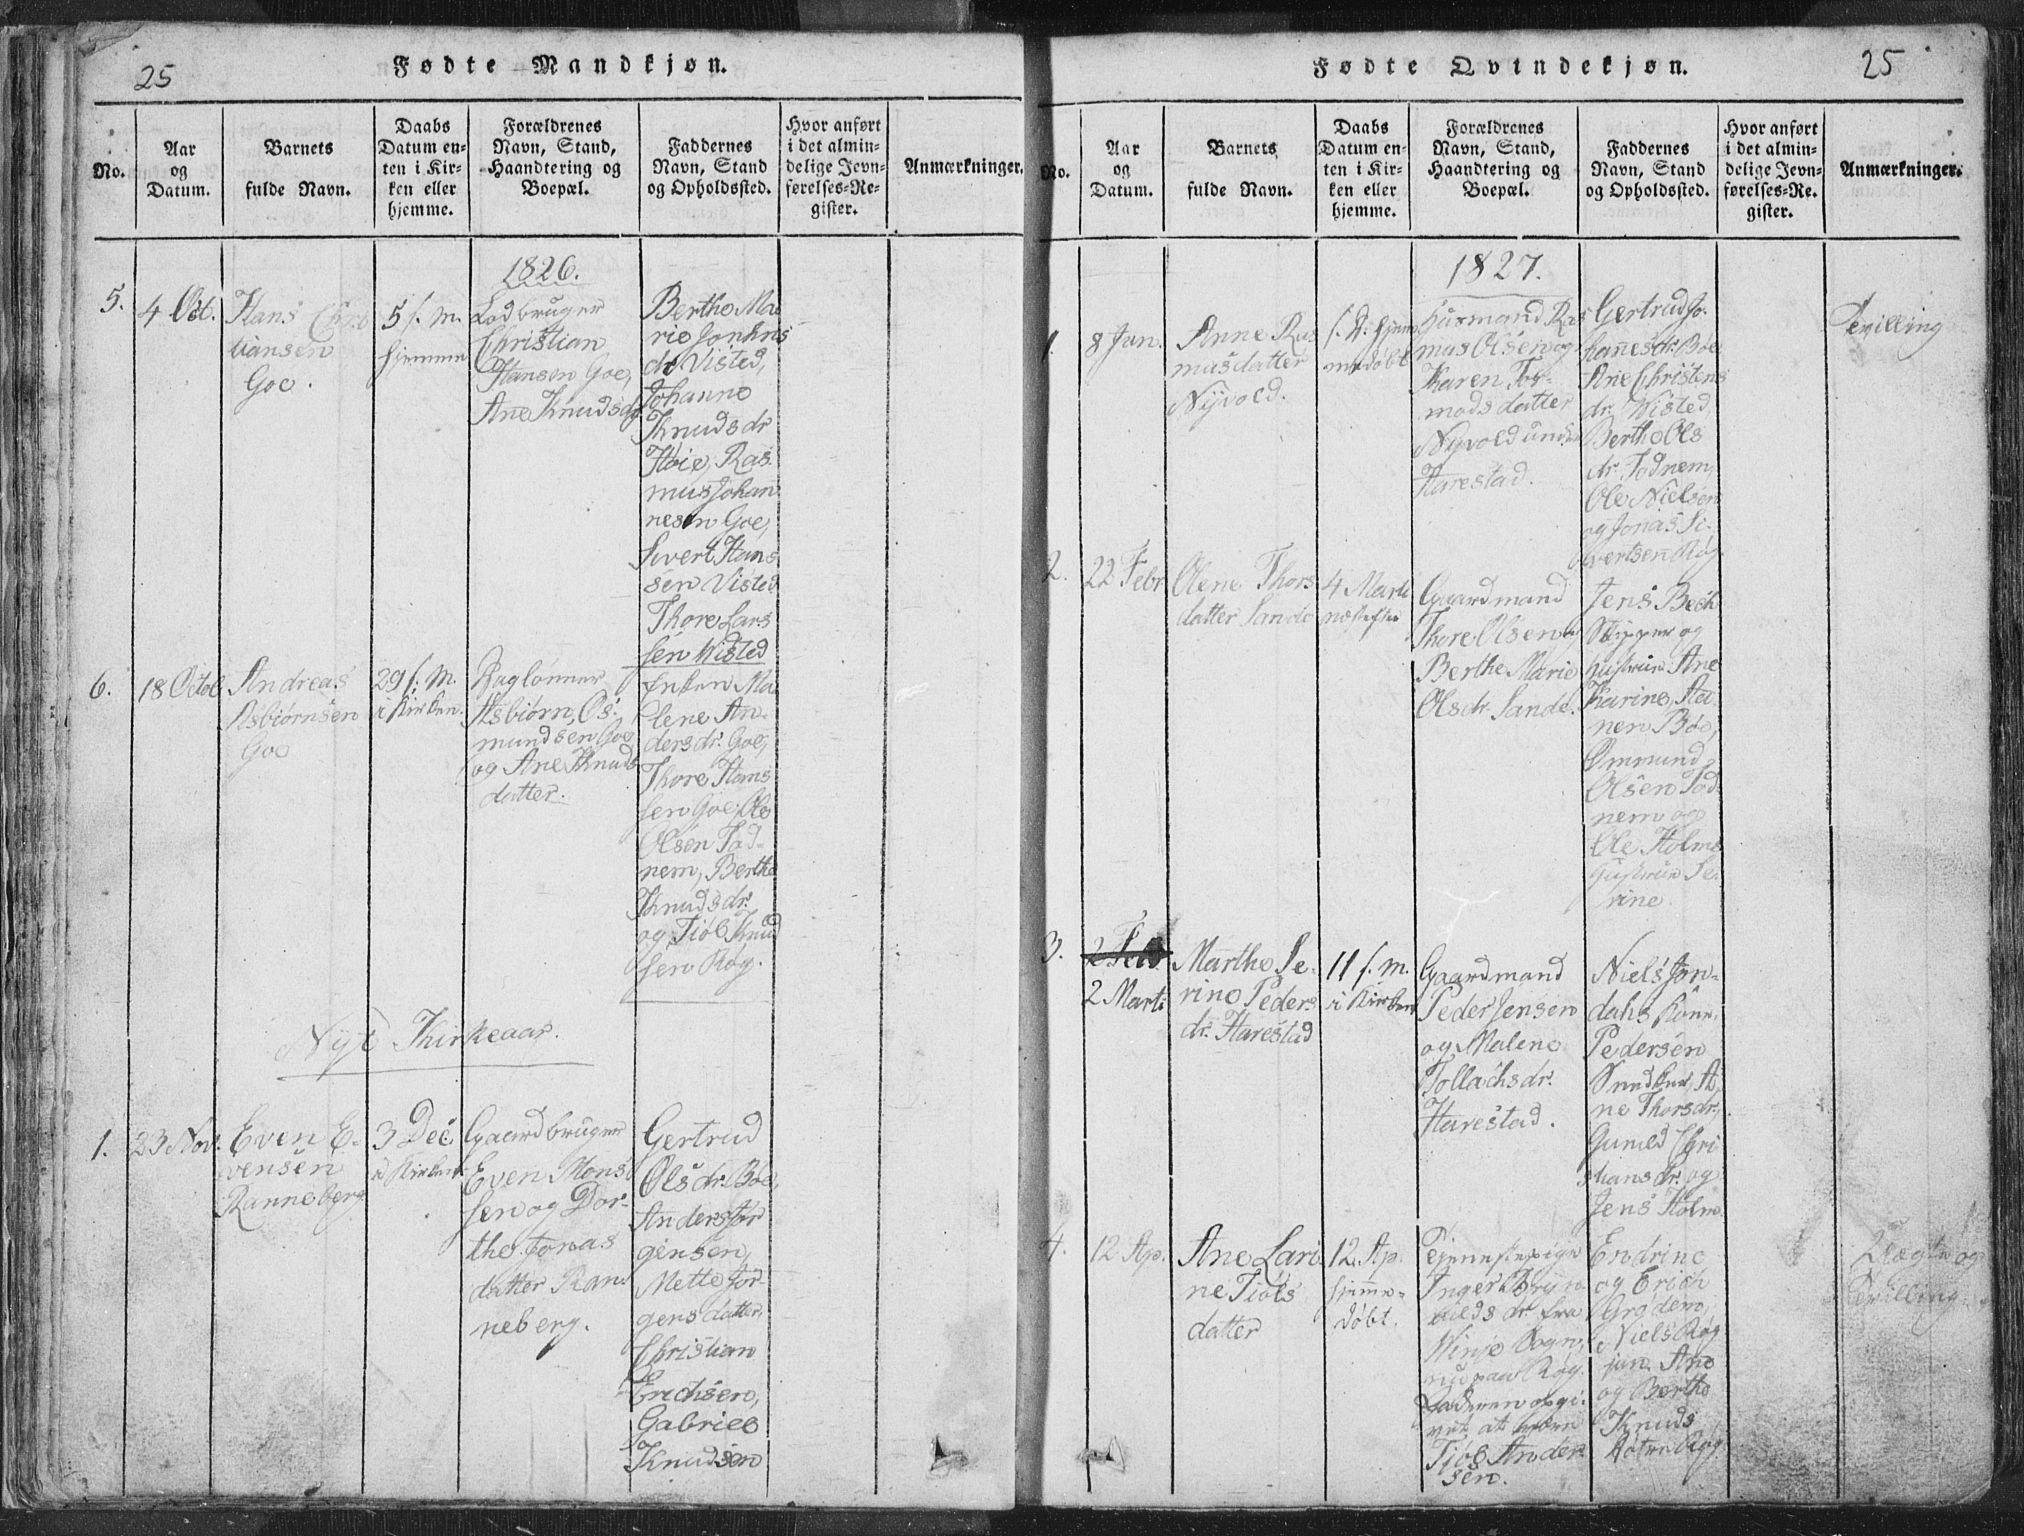 25
Fødte Mandkjøn.
No.
Aar
og
Datum.
Barnets
fulde Navn.
Daabs
Datum en-
ten i Kir-
ken eller
hjemme.
Forældrenes
Navn, Stand,
Haandtering og
Boepæl.
Faddernes
Navn, Stand
og Opholdssted.
Hvor anført
i det almin-
delige Jevn-
førelses-Re-
gister.
Anmærkninger.
1826.
5.
4 Oct.
Hans Chri
tiansen
Goe.
5 f. M.
hjemme
Lodbruger
Christian
Hansen Goe,
Ane Knudsdr
Berthe Ma
rie
dr Visted,
Johanne
Knudsdr
Høie, Ras
mus Johan
nesen Goe,
Sivert Hans
sen Visted
Thore Lars
sen Wisted
6.
18 Octob
Andreas
Asbiørnsen
Goe
29 f. M.
i Kirken.
Daglønner
Asbiørn Os
mundsen Goe
og Ane Knuds
datter.
Enken Ma
lene An-
dersdr. Goe,
Thore Hans
sen Goe, Ole
Olsen Tod-
nem, Berthe
Knudsdr.
og Tiøl Knud
sen Røg.
Nyt Kirkeaar.
1.
23 Nov.
Even E-
vensen
Ranneberg
3 Dec
i Kirken
Gaardbruger
Even Mons
sen og Dor-
the Jonas
datter Ran
neberg.
Gertrud
Olsdr. Bøe,
Anders Jør
gensen,
Mette Jør-
gensdatter,
Christian
Erichsen,
Gabriel
Knudsen
25
Fødte Qvindekjøn.
No.
Aar
og
Datum.
Barnets
fulde Navn.
Daabs
Datum en-
ten i Kir-
ken eller
hjemme.
Forældrenes
Navn, Stand,
Haandtering og
Boepæl.
Faddernes
Navn, Stand
og Opholdssted.
Hvor anført
i det almin-
delige Jevn-
førelses-Re-
gister.
Anmærkninger.
1827.
1.
8 Jan.
Anne Ras
musdatter
Nyvold.
f. D. hjem
medøbt
Huusmand Ras
mus Olsen og
Karen Tor-
modsdatter
Nyvold under
Harestad.
Gertrud Jo-
hannesdr. Bøe
Ane Christens
dr. Wisted,
Berthe Ols
dr. Todnem,
Ole Nielsen
og Jonas Si-
vertsen Røg.
Tvilling
2.
22 Febr
Olene Thors
datter Sande
4 Marti
næstefter
Gaardmand
Thore Olsen og
Berthe Marie
Olsdr. Sande.
Jens Bech
Skipper og
Hustrue Ane
Karine, Ha
nem Bøe,
Ommund
Olsen Tod-
nem og
Ole Holms
Hustrue Se-
rine.
3.
2 Feb.
2 Marti
Marthe Se-
rine Peders
dr. Harestad
11 f. M.
i Kirken
Gaardmand
Peder Jensen
og Malene
Tollachsdr.
Harestad.
Niels Jon-
dahs Kone,
Pedersen
Snedker, A
ne Thorsdr,
Guneld Chri
stiansdr. og
Jens Holm
4.
12 Ap.
Ane Lari
ne Tiøls
datter
12. Ap.
hjemme-
døbt.
Tjenestepige
Inger Bryn
uldsdr fra
Winje Sogn,
nu paa Røg.
Faderen opgi-
vet at være
Tjøl Ander
sen.
Endrine
og Erich
Grodem,
Niels Røg
jun. Ane
og Berthe
Knuds
døtre Røg
Uægte og
Tvilling.